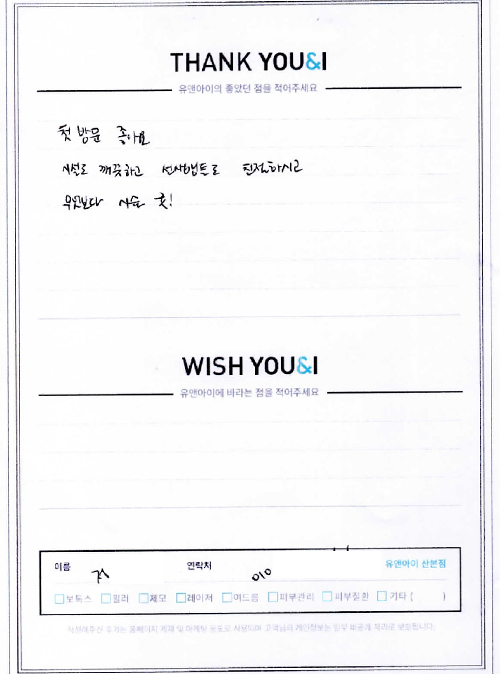 THANK YOU&I
유앤아이의 좋았던 점을 적어주세요
첫 방문 좋아요
시설도 깨끗하고 친절하시고
무엇보다 시술 굿!
WISH YOU&I
유앤아이에 바라는 점을 적어주세요
이름 연락처 010 유앤아이 산본점
보톡스 필러 제모 레이저 여드름 피부관리 피부질환 기타 ( )
작성해주신 후기는 홈페이지 게재 및 마케팅 용도로 사용되며 고객님의 개인정보는 일부 비공개 처리로 보호됩니다.